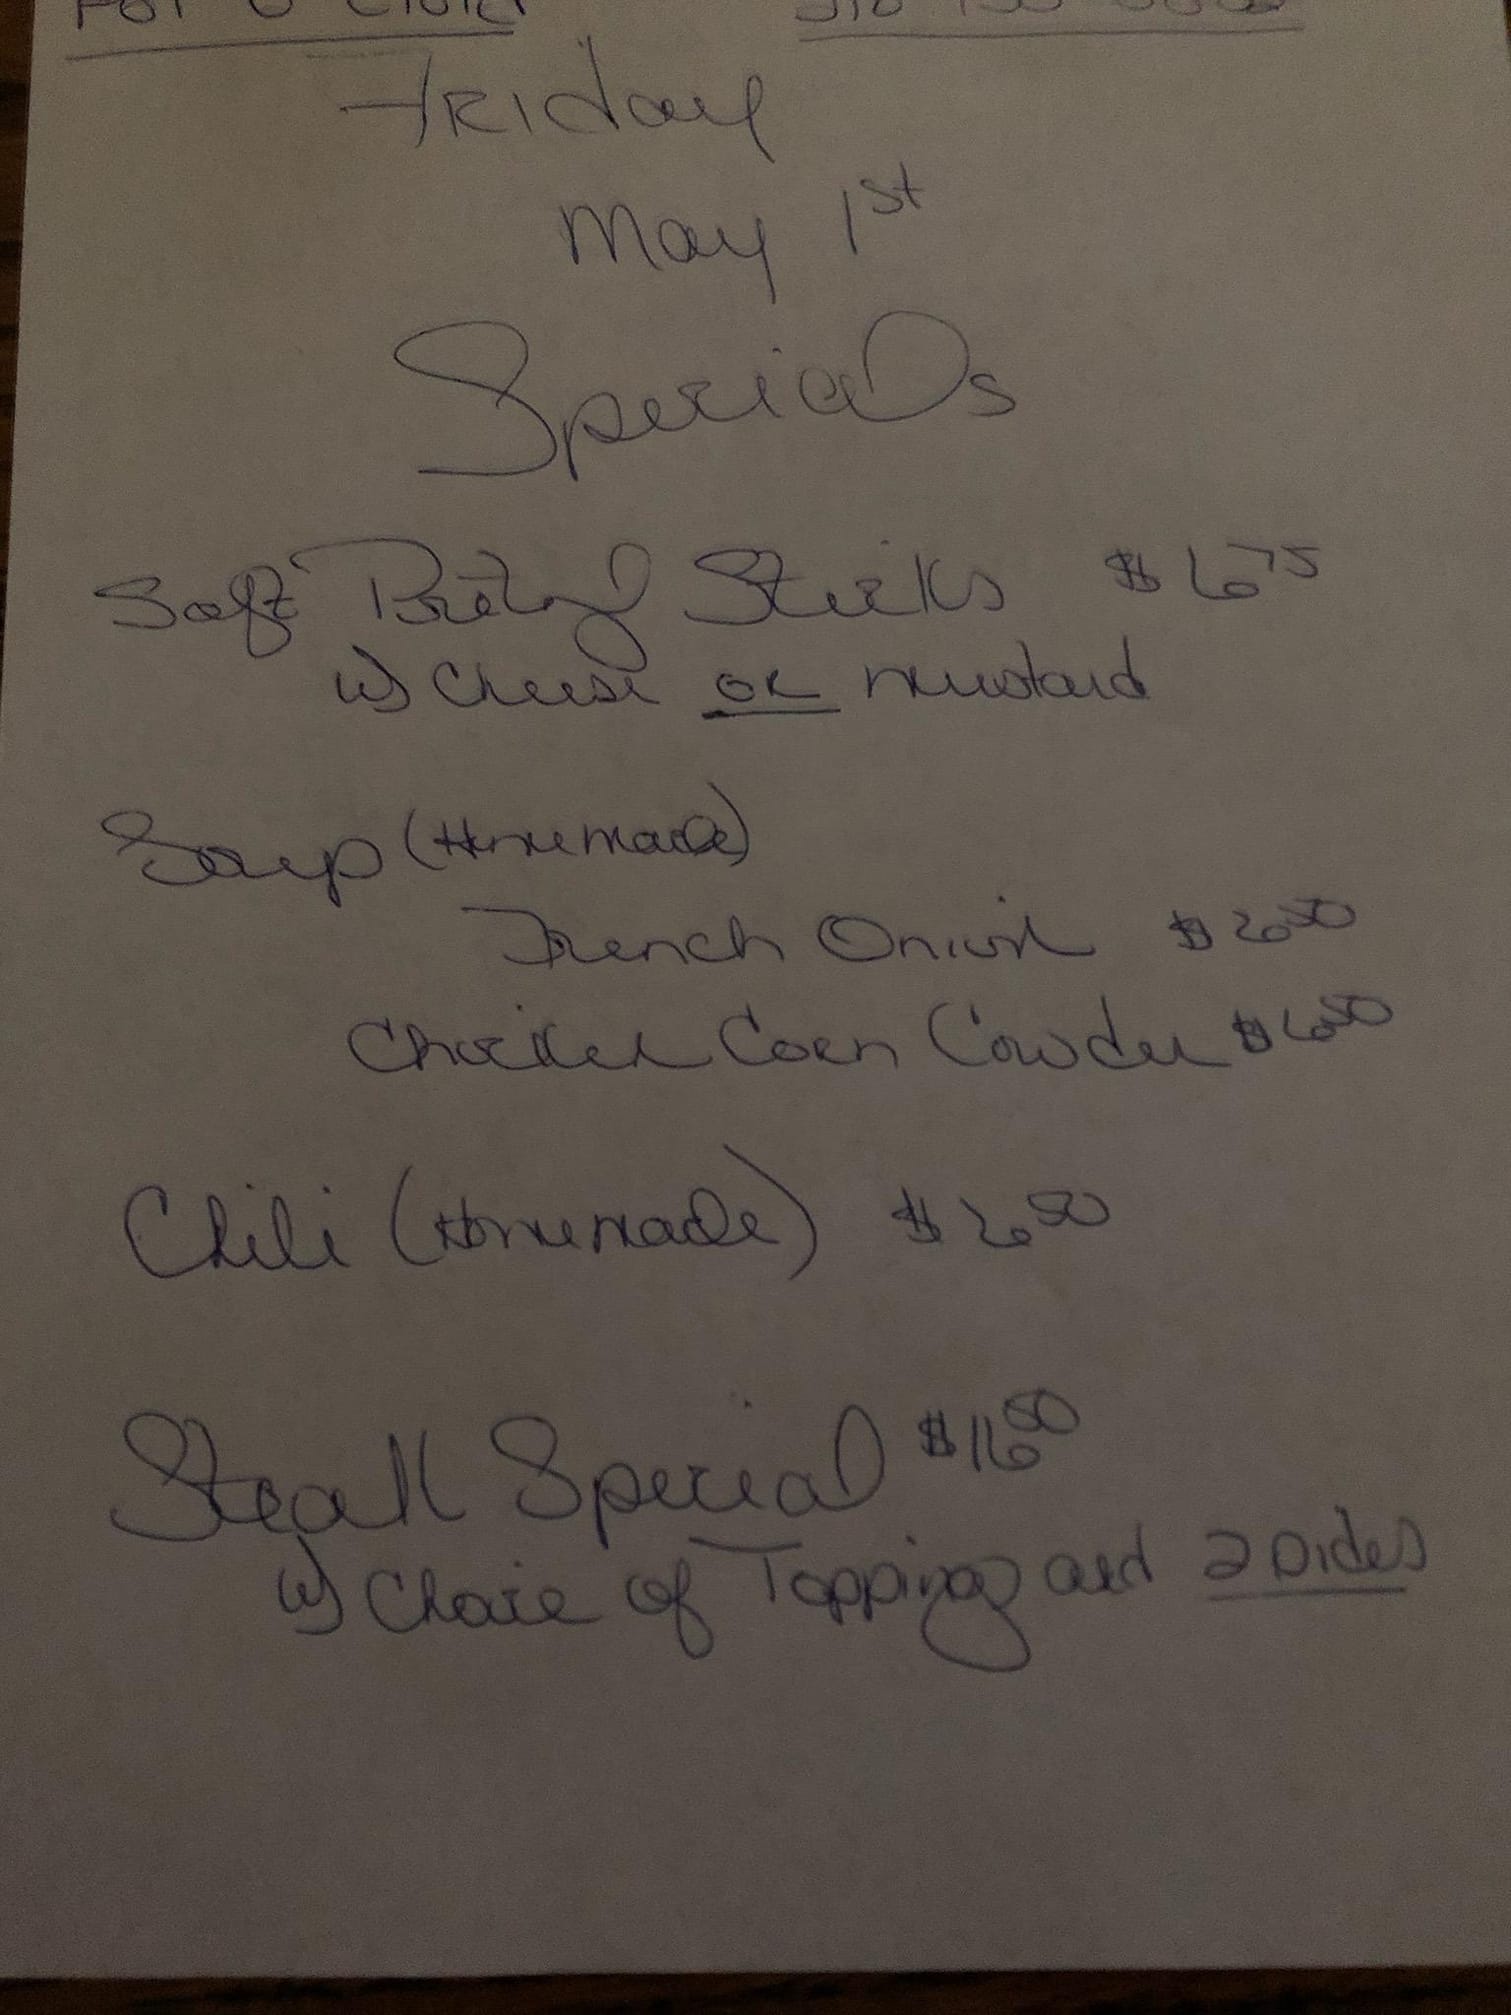 Friday
May 1st
Specials
Soft Pretzel Sticks $6 75
w/ Cheese OR mustard
Soup (Homemade)
French Onion $6 50
Chicken Corn Cowder $6 50
Chili (Homemade) $6 50
Steak Special $16 50
w/ Choice of Topping and 2 sides